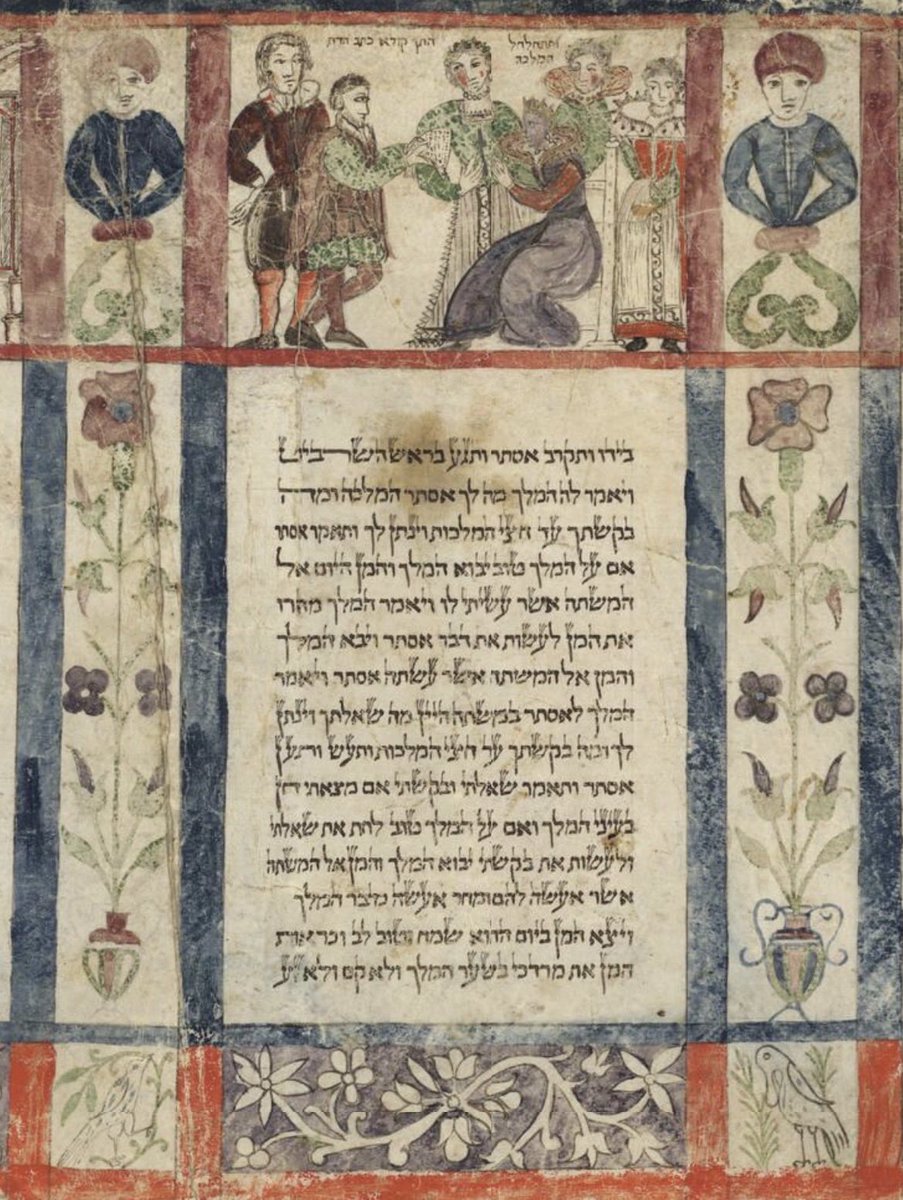 ותתחלחל
המלכה
התך קורא כתב הדת
בידו ותקרב אסתר ותגע בראש השרביט
ויאמר לה המלך מה לך אסתר המלכה ומה
בקשתך עד חצי המלכות וינתן לך ותאמר אסתר
אם על המלך טוב יבוא המלך והמן היום אל
המשתה אשר עשיתי לו ויאמר המלך מהרו
את המן לעשות את דבר אסתר ויבא המלך
והמן אל המשתה אשר עשתה אסתר ויאמר
המלך לאסתר במשתה היין מה שאלתך וינתן
לך ומה בקשתך עד חצי המלכות ותעש ותען
אסתר ותאמר שאלתי ובקשתי אם מצאתי חן
בעיני המלך ואם על המלך טוב לתת את שאלתי
ולעשות את בקשתי יבוא המלך והמן אל המשתה
אשר אעשה להם ומחר אעשה כדבר המלך
ויצא המן ביום ההוא שמח וטוב לב וכראות
המן את מרדכי בשער המלך ולא קם ולא זע